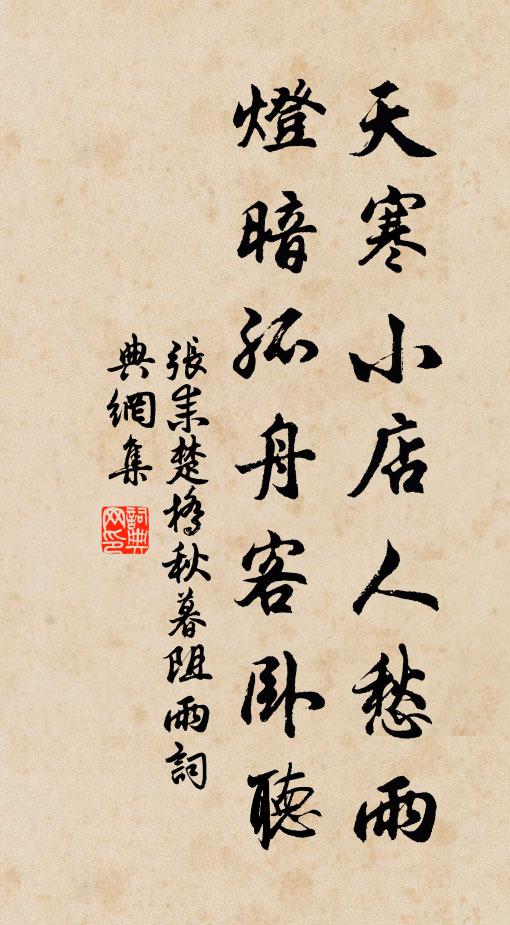 天寒小店人愁雨
燈暗孤舟客臥聽
張耒楚橋秋暮阻雨詞
典網集
詞典
网印